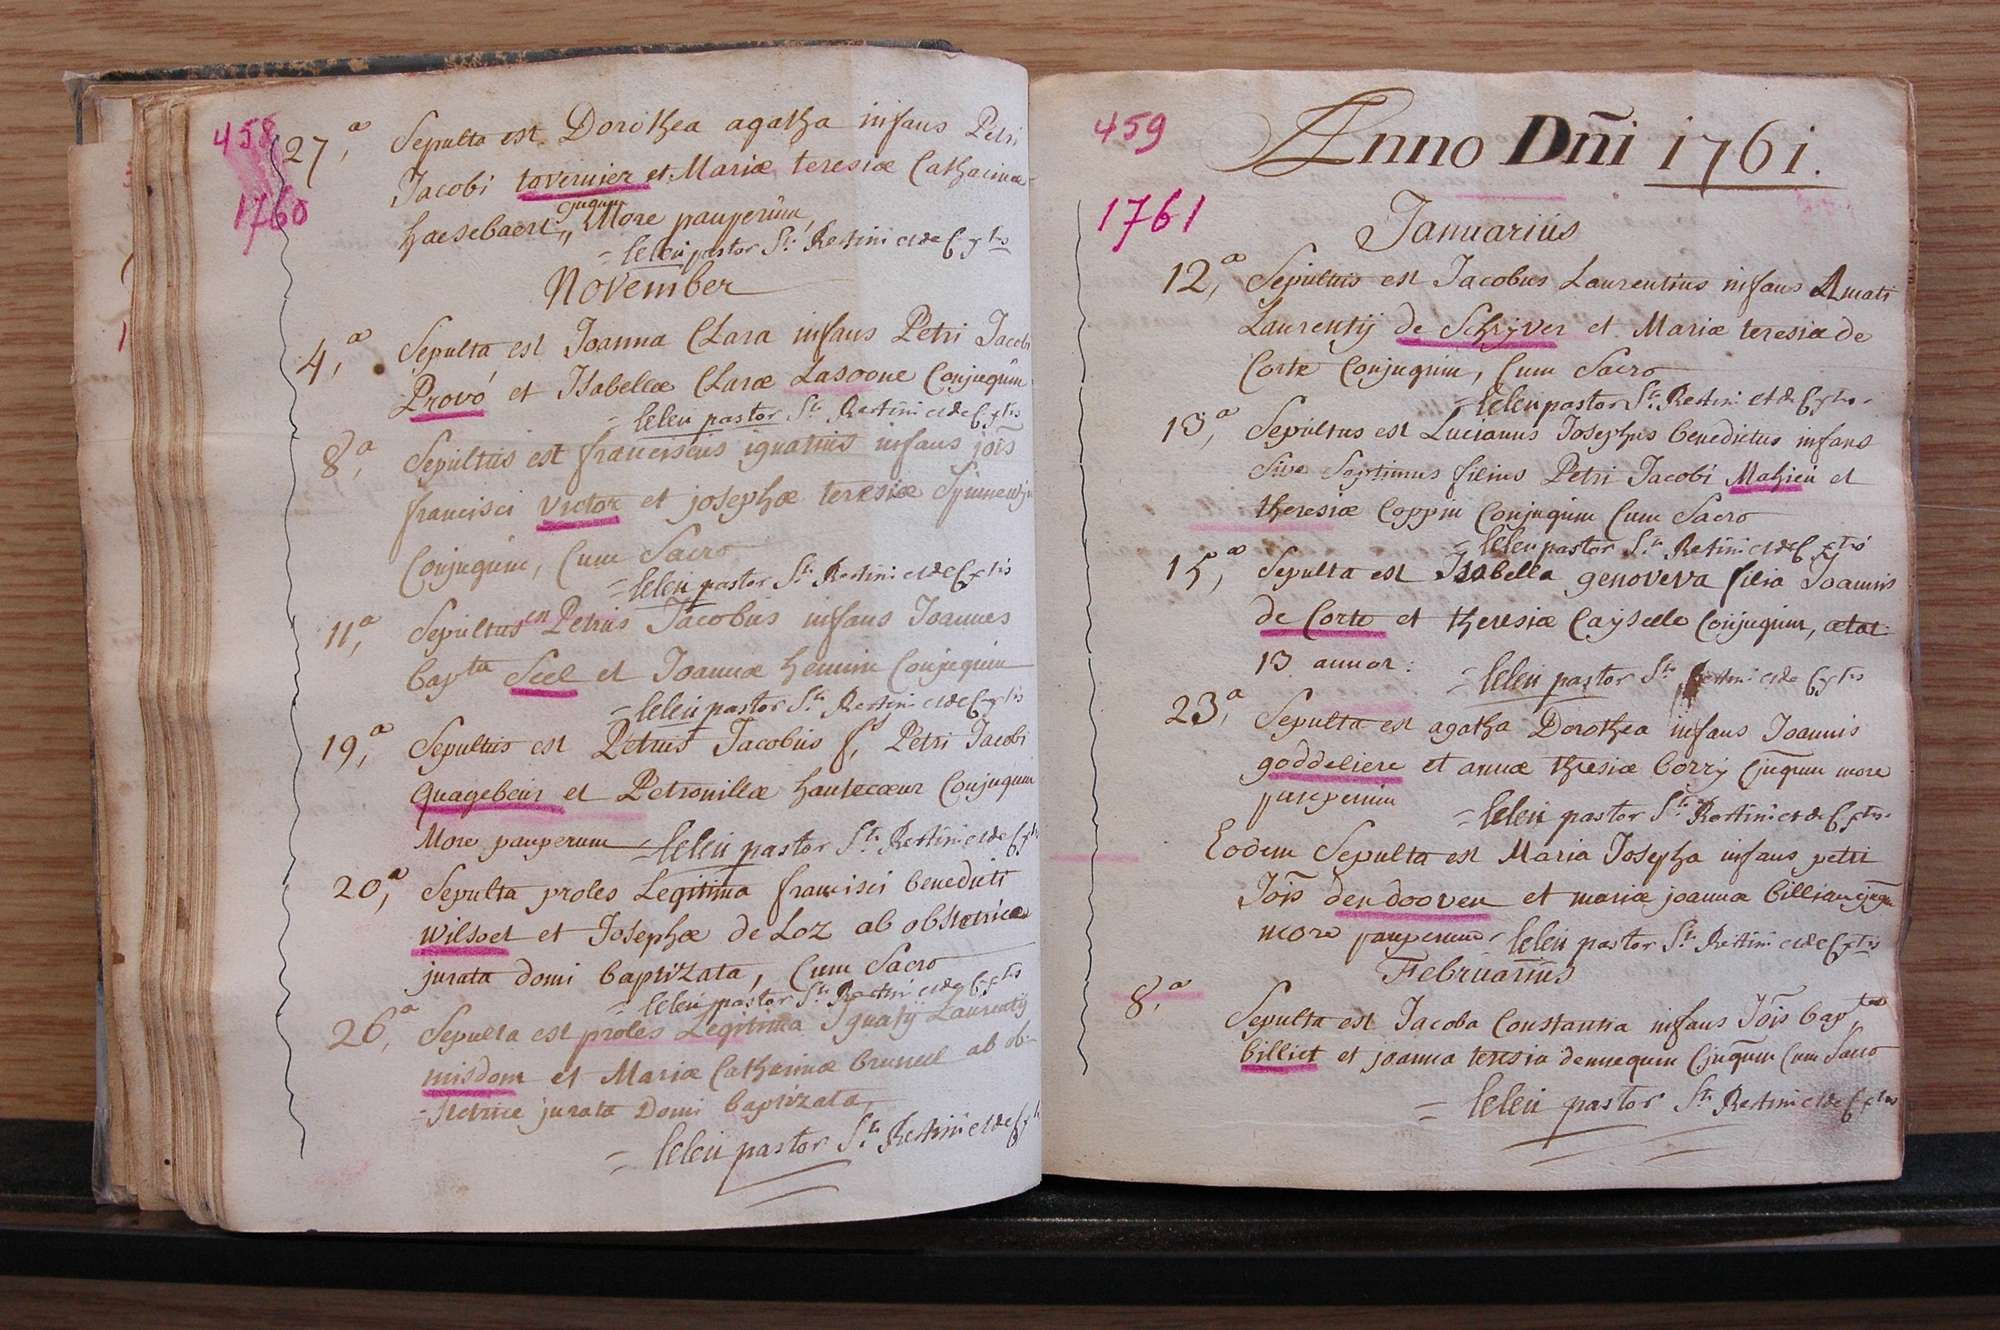 458
1760
27,a Sepulta est Dorothea agatha infans Petri
Jacobi tavernier et Mariæ teresiæ Catharinæ
haesebaert Cjugum, More pauperum,
= leleu pastor Sti Restini et de Cxtis
November
4,a Sepulta est Joanna Clara infans Petri Jacobi
Provó et Isabellæ Claræ Lasoone Conjugum
= leleu pastor Sti Restini et de Cxtis
8,a Sepultus est franciscus ignatius infans jois
francisci Victor et josephæ teresiæ
Conjugum, Cum Sacro
= leleu pastor Sti Restini et de Cxtis
11,a Sepultus est Petrus Jacobus infans Joannes
bapta Seel et Joannæ hennin Conjugum
= leleu pastor Sti Restini et de Cxtis
19,a Sepultus est Petrus Jacobus fs Petri Jacobi
Quagebeur et Petronillæ hautecœur Conjugum
More pauperum = leleu pastor Sti Restini et de Cxtis
20,a Sepulta proles Legitima francisci benedicti
Wilsoet et Josephæ de Loz ab obstetrice
jurata domi baptizata, Cum Sacro
= leleu pastor Sti Restini et de Cxtis
26,a Sepulta est proles Legitima Ignatij Laurentij
misdom et Mariæ Catharinæ bruneel ab ob-
-stetrice jurata Domi baptizata,
= leleu pastor Sti Restini et de Cxtis
459
Anno Dñi 1761.
1761
Januarius
12,a Sepultus est Jacobus Laurentius infans Amati
Laurentij de Schijver et Mariæ teresia de
Corte Conjugum, Cum Sacro
= leleu pastor Sti Restini et de Cxtis
13,a Sepultus est Lucianus Josephus benedictus infans
Sive Septimus filius Petri Jacobi Mahieu et
theresiæ Coppin Conjugum Cum Sacro
= leleu pastor Sti Restini et de Cxtis
15,a Sepulta est Isabella genoveva filia Joannis
de Corte et theresiæ Caÿseele Conjugum, ætat:
13 annor: = leleu pastor Sti Restini et de Cxtis
23,a Sepulta est agatha Dorothea infans Joannis
goddeliere et annæ thresiæ borrÿ Cjugum more
pauperum = leleu pastor Sti Restini et de Cxtis
Eodem Sepulta est Maria Josepha infans petri
Jois den dooven et mariæ joannæ billiau cjugum
more pauperum = leleu pastor Sti Restini et de Cxtis
Februarius
8,a Sepulta est Jacoba Constantia infans Jois baptæ
billiet et joanna teresia dennequin Cjugum Cum Sacro
= leleu pastor Sti Restini et de Cxtis